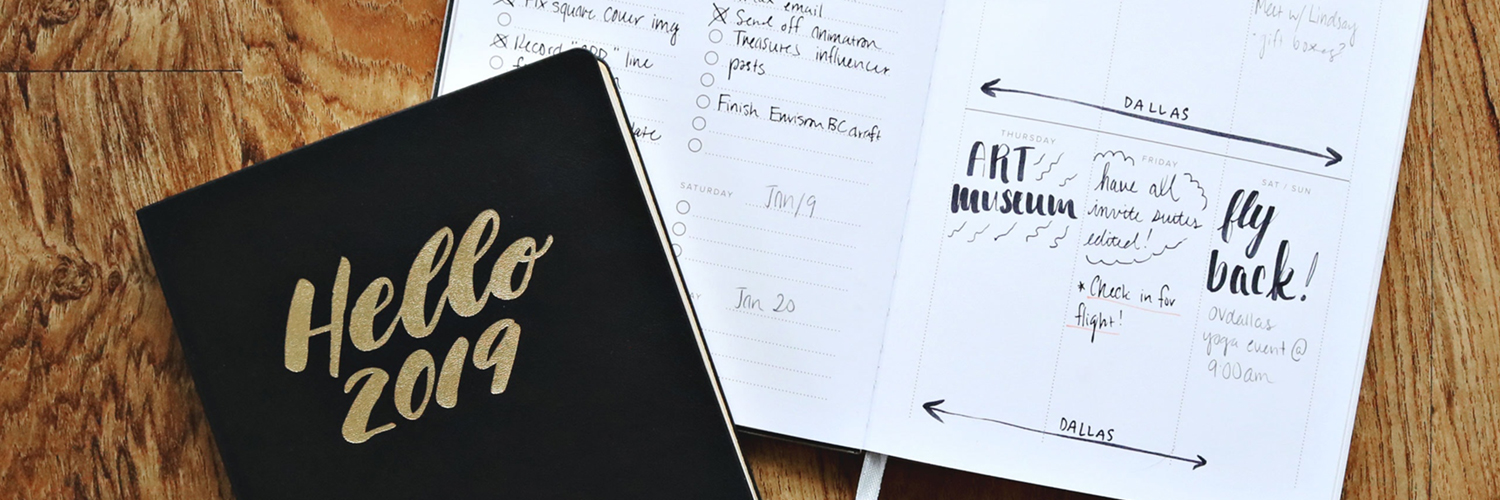 Hello
2019
Fix square cover img
Record "      " line
email
Send off animation
Treasures influencer
posts
Finish Envision BC draft
SATURDAY
Jan 19
Jan 20
Meet w/ Lindsay
gift boxes?
DALLAS
THURSDAY
ART
museum
FRIDAY
have all
invite suites
edited!
* Check in for
flight!
SAT / SUN
fly
back!
ovdallas
yoga event @
9:00am
DALLAS